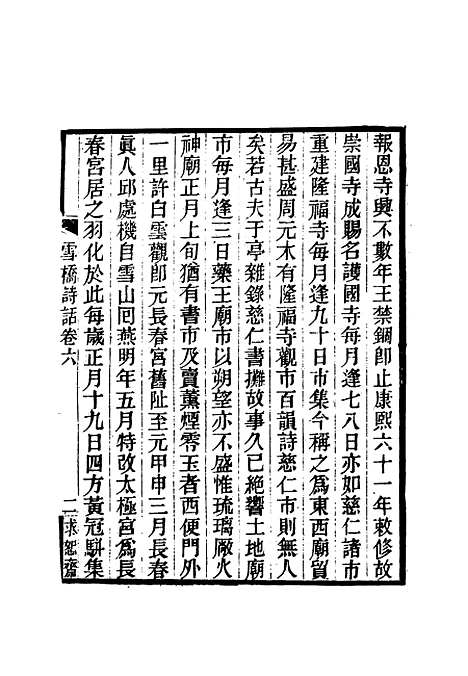 報恩寺興不數年王禁錮卽止康熙六十一年敕修故
崇國寺成賜名護國寺每月逢七八日亦如慈仁諸市
重建隆福寺每月逢九十日市集今稱之爲東西廟貿
易甚盛周元木有隆福寺觀市百韻詩慈仁市則無人
矣若古夫于亭雜錄慈仁書攤故事久已絕響土地廟
市每月逢三日藥王廟市以朔望亦不盛惟琉璃廠火
神廟正月上旬猶有書市及賣薰煙零玉者西便門外
一里許白雲觀卽元長春宮舊阯至元甲申三月長春
眞人邱處機自雪山囘燕明年五月特改太極宮爲長
春宮居之羽化於此每歲正月十九日四方黃冠駢集
雪橋詩話卷六
二
求恕齋